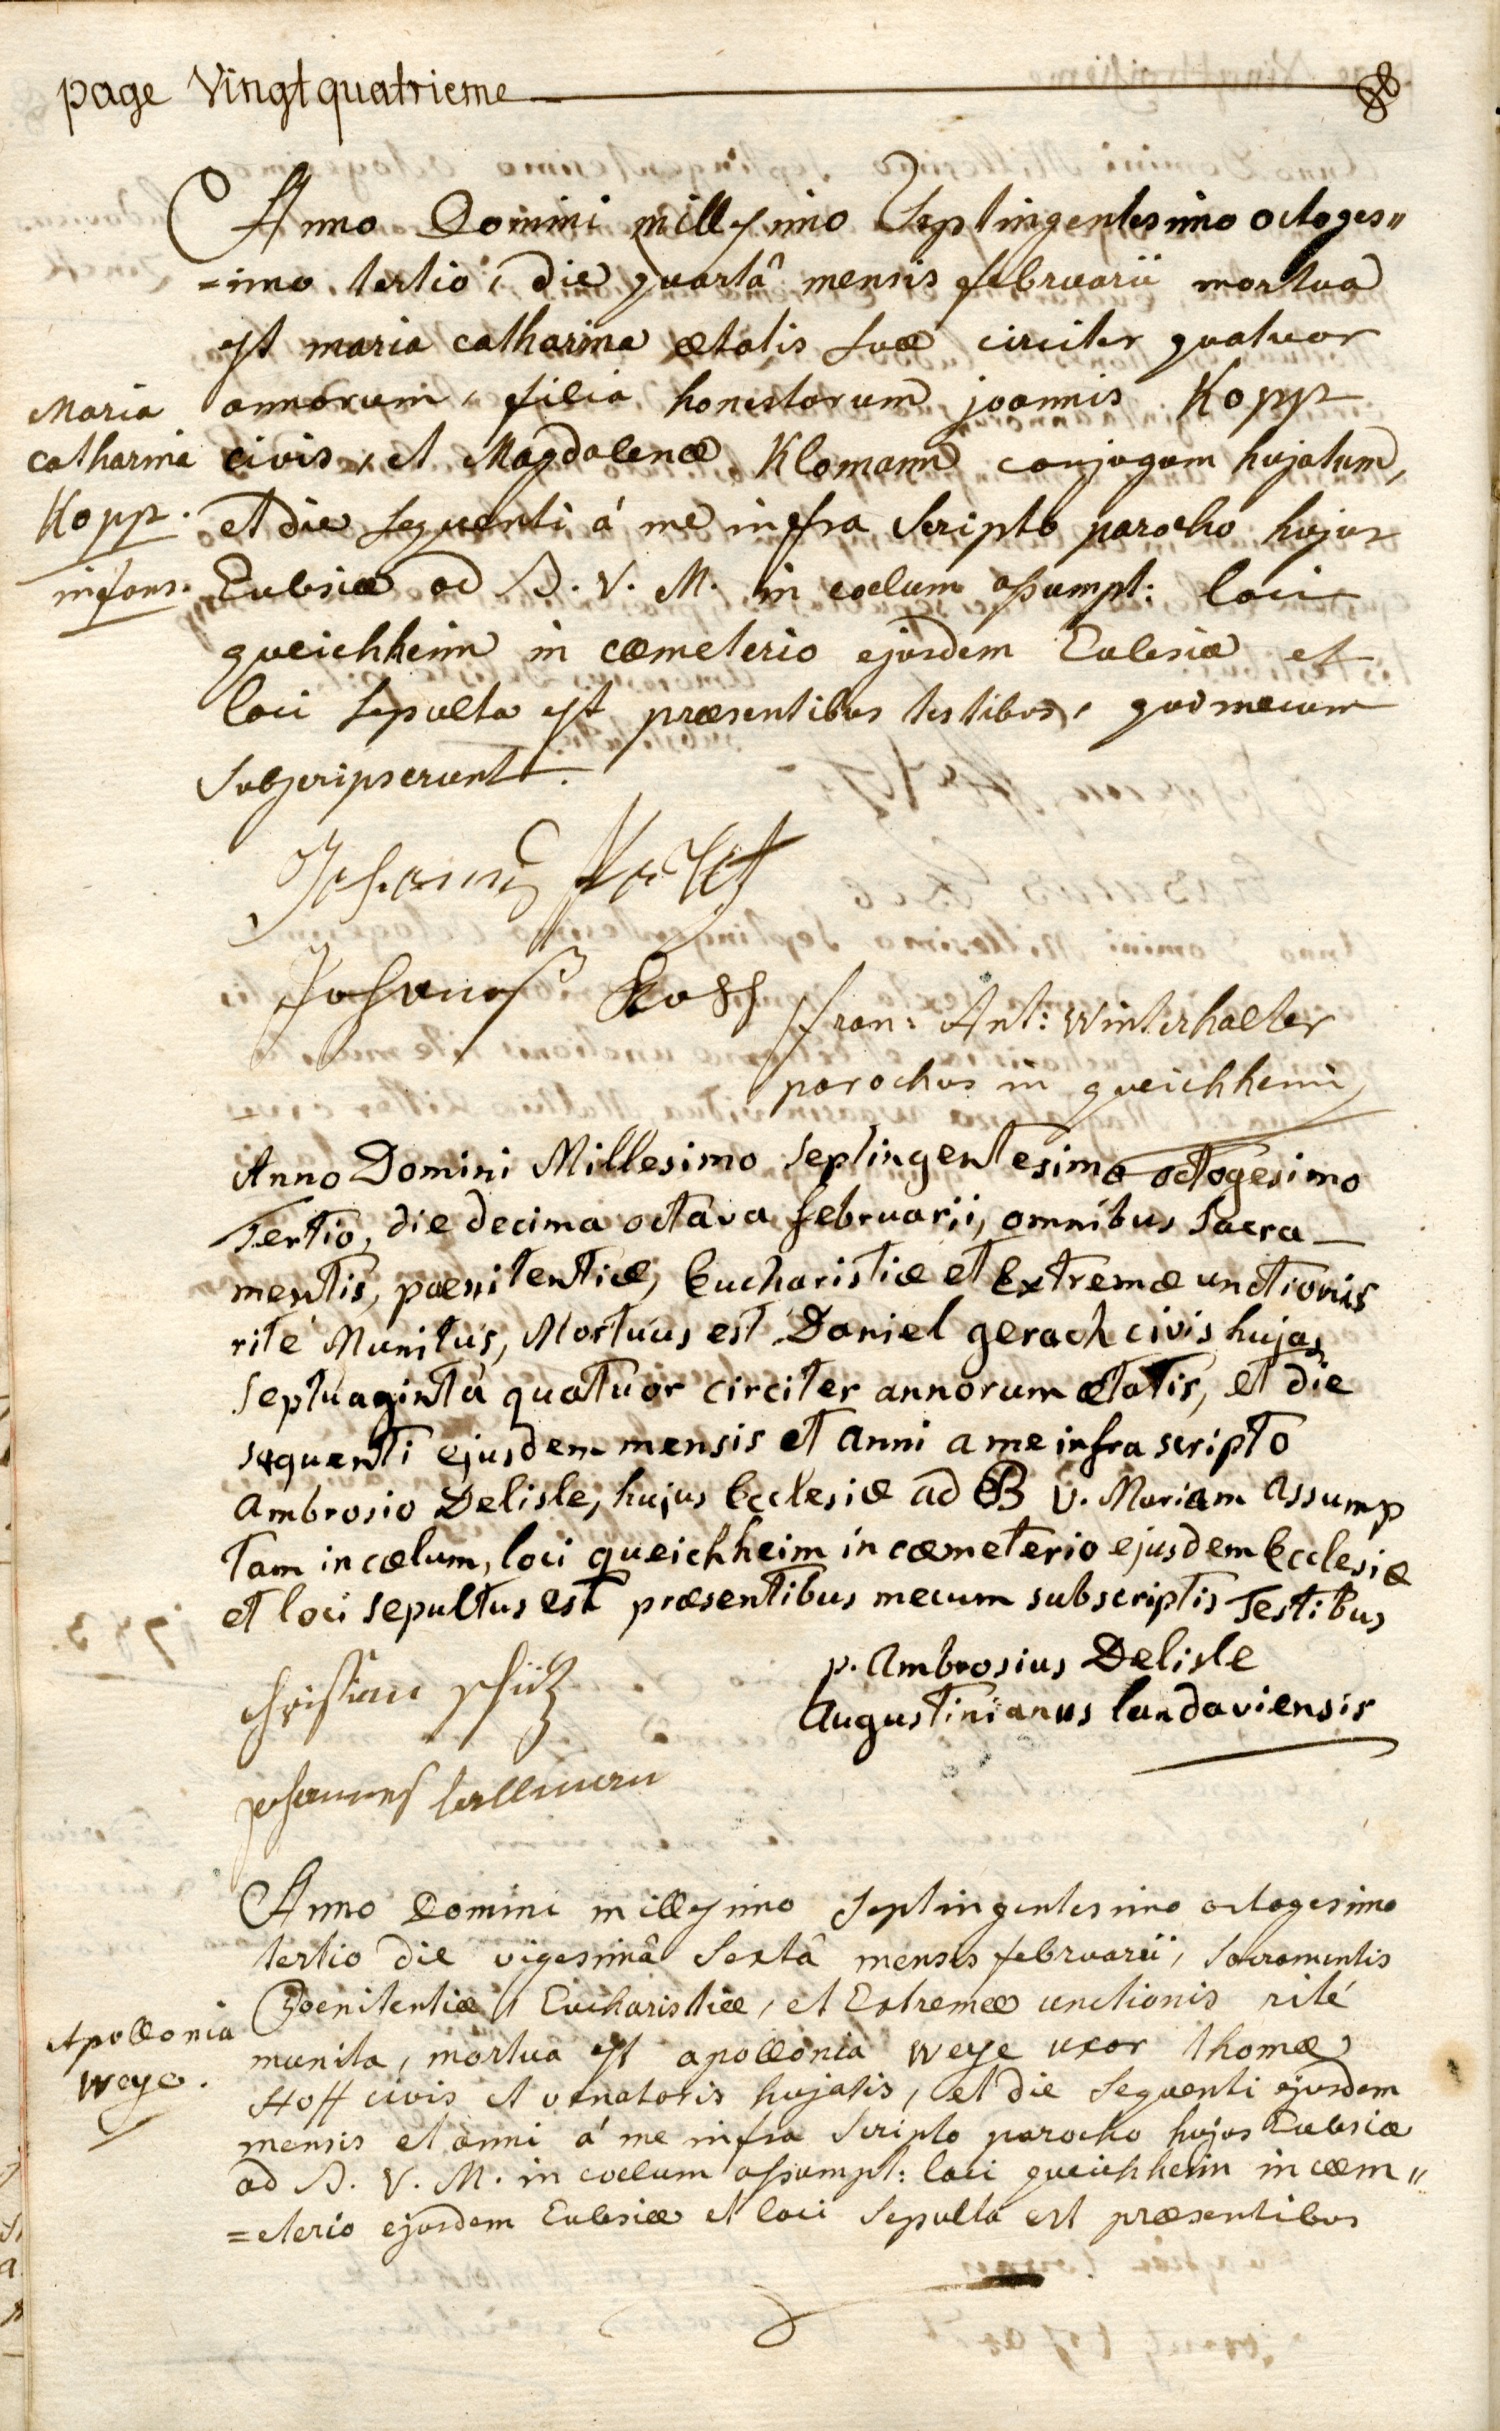 page Vingtquatrieme
Anno Domini millesimo Septingentesimo octoges〃
=imo tertio, die quartâ mensis februarii mortua
est maria catharina ætatis suæ circiter quatuor
Maria
catharina
Kopp.
infans.
annorum, filia honestorum joannis Kopp
civis, et Magdalenæ Klomann conjugum hujatum,
et die sequenti á me infra Scripto parocho hujus
Eclesiæ ad B. V. M. in coelum assumpt: loci
queichheim in cæmeterio ejusdem Eclesiæ et
loci sepulta est præsentibus testibus, qui mecum
Subscripserunt.
Johannes
Johannes Kopp
fran: Ant: Winterhalter
parochus in queichheim
Anno Domini Millesimo Septingentesimo octogesimo
Tertio, die decima octava februarii, omnibus Sacra_
mentis, pænitentiæ, Eucharistiæ et Extremæ unctionis
rité Munitus, Mortuus est Daniel gerach civis hujas
Septuaginta quatuor circiter annorum ætatis, et die
sequenti ejusdem mensis et anni a me infra scripto
Ambrosio Delisle, hujus Ecclesiæ ad B V. Mariam Assump
tam in cælum, loci queichheim in cæmeterio ejusdem Ecclesiæ
et loci sepultus est præsentibus mecum subscriptis Testibus
p. Ambrosius Delisle
Augustinianus landaviensis
christian Schütz
Johannes hellmann
Anno Domini millesimo Septingentesimo octogesimo
tertio die vigesimâ Sextâ mensis februarii, Sacramentis
Poenitentiæ, Eucharistiæ, et Extremæ unctionis rité
Apollonia
Weye.
munita, mortua est apollonia Weye uxor thomæ
Hoff civis et venatoris hujatis, et die Sequenti ejusdem
mensis et anni á me infra Scripto parocho hujus Eclesiæ
ad B. V. M. in coelum assumpt: loci queichheim in cæm〃
=eterio ejusdem Eclesiæ et loci Sepulta est præsentibus